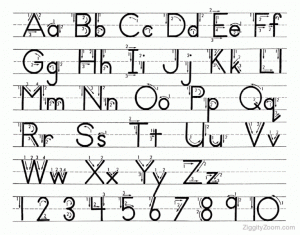 Aa Bb Cc Dd Ee Ff
Gg Hh Ii Jj Kk Ll
Mm Nn Oo Pp Qq
Rr Ss Tt Uu Vv
Ww Xx Yy Zz
1 2 3 4 5 6 7 8 9 10
ZiggityZoom.com